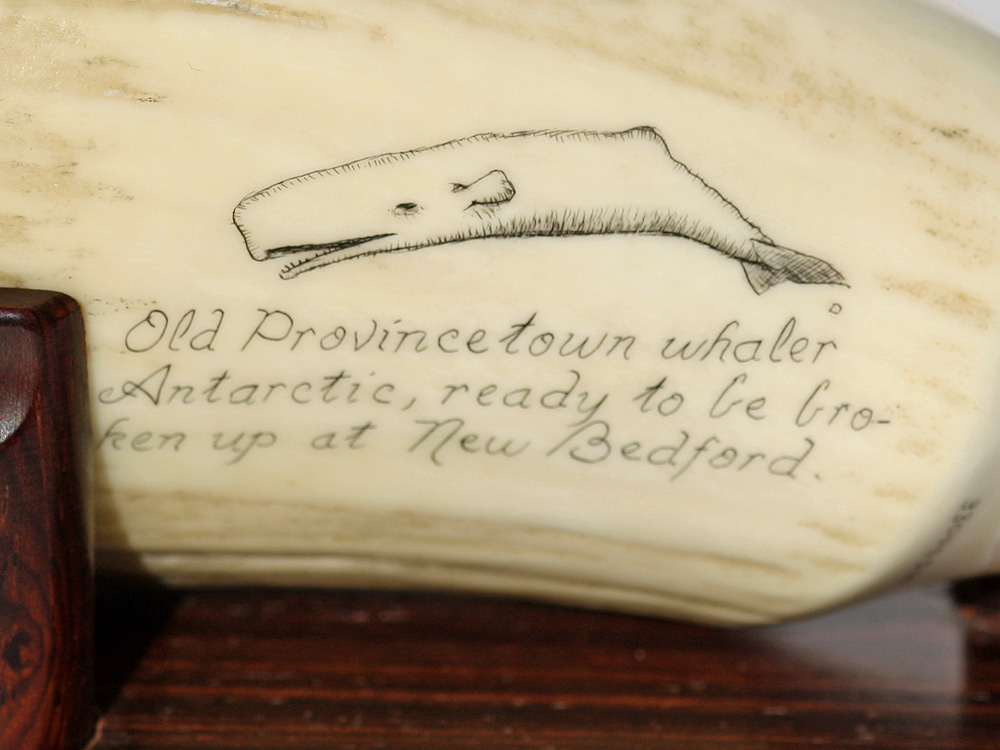 Old Provincetown whaler
Antarctic, ready to be bro-
ken up at New Bedford.